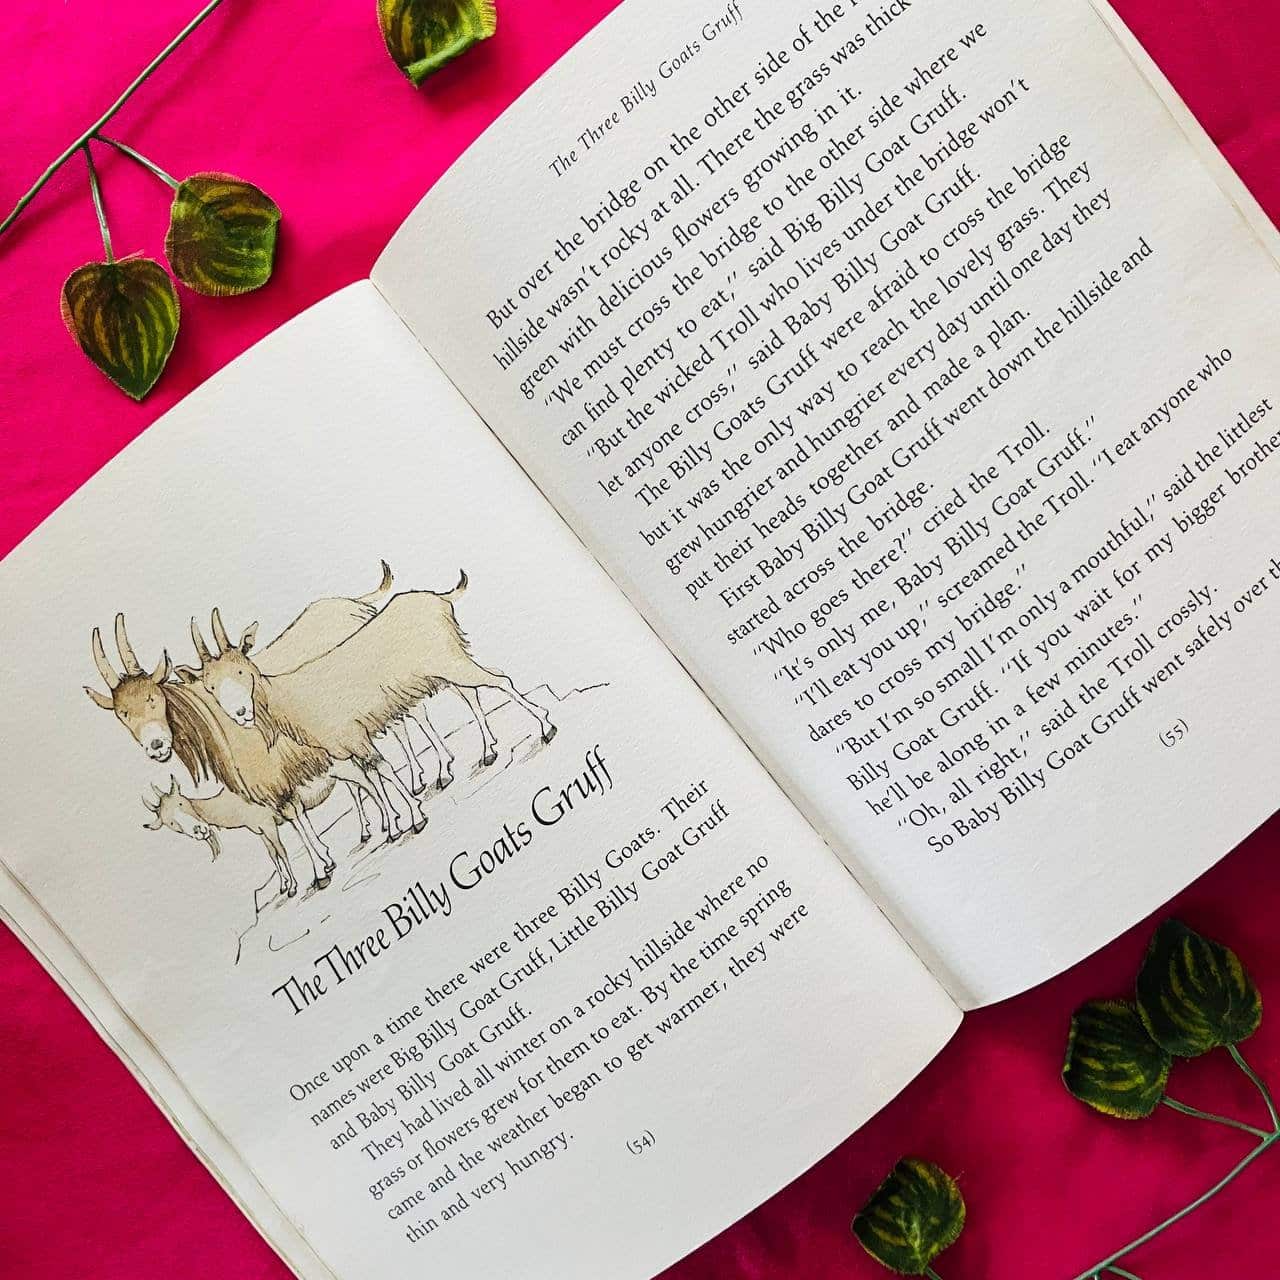 The Three Billy Goats Gruff
Once upon a time there were three Billy Goats. Their
names were Big Billy Goat Gruff, Little Billy Goat Gruff
and Baby Billy Goat Gruff.
They had lived all winter on a rocky hillside where no
grass or flowers grew for them to eat. By the time spring
came and the weather began to get warmer, they were
thin and very hungry.
(54)
The Three Billy Goats Gruff
But over the bridge on the other side of the
hillside wasn't rocky at all. There the grass was thick
green with delicious flowers growing in it.
"We must cross the bridge to the other side where we
can find plenty to eat," said Big Billy Goat Gruff.
"But the wicked Troll who lives under the bridge won't
let anyone cross," said Baby Billy Goat Gruff.
The Billy Goats Gruff were afraid to cross the bridge
but it was the only way to reach the lovely grass. They
grew hungrier and hungrier every day until one day they
put their heads together and made a plan.
First Baby Billy Goat Gruff went down the hillside and
started across the bridge.
"Who goes there?" cried the Troll.
"It's only me, Baby Billy Goat Gruff."
"I'll eat you up," screamed the Troll. "I eat anyone who
dares to cross my bridge."
"But I'm so small I'm only a mouthful," said the littlest
Billy Goat Gruff. "If you wait for my bigger brother
he'll be along in a few minutes."
"Oh, all right," said the Troll crossly.
So Baby Billy Goat Gruff went safely over
(55)